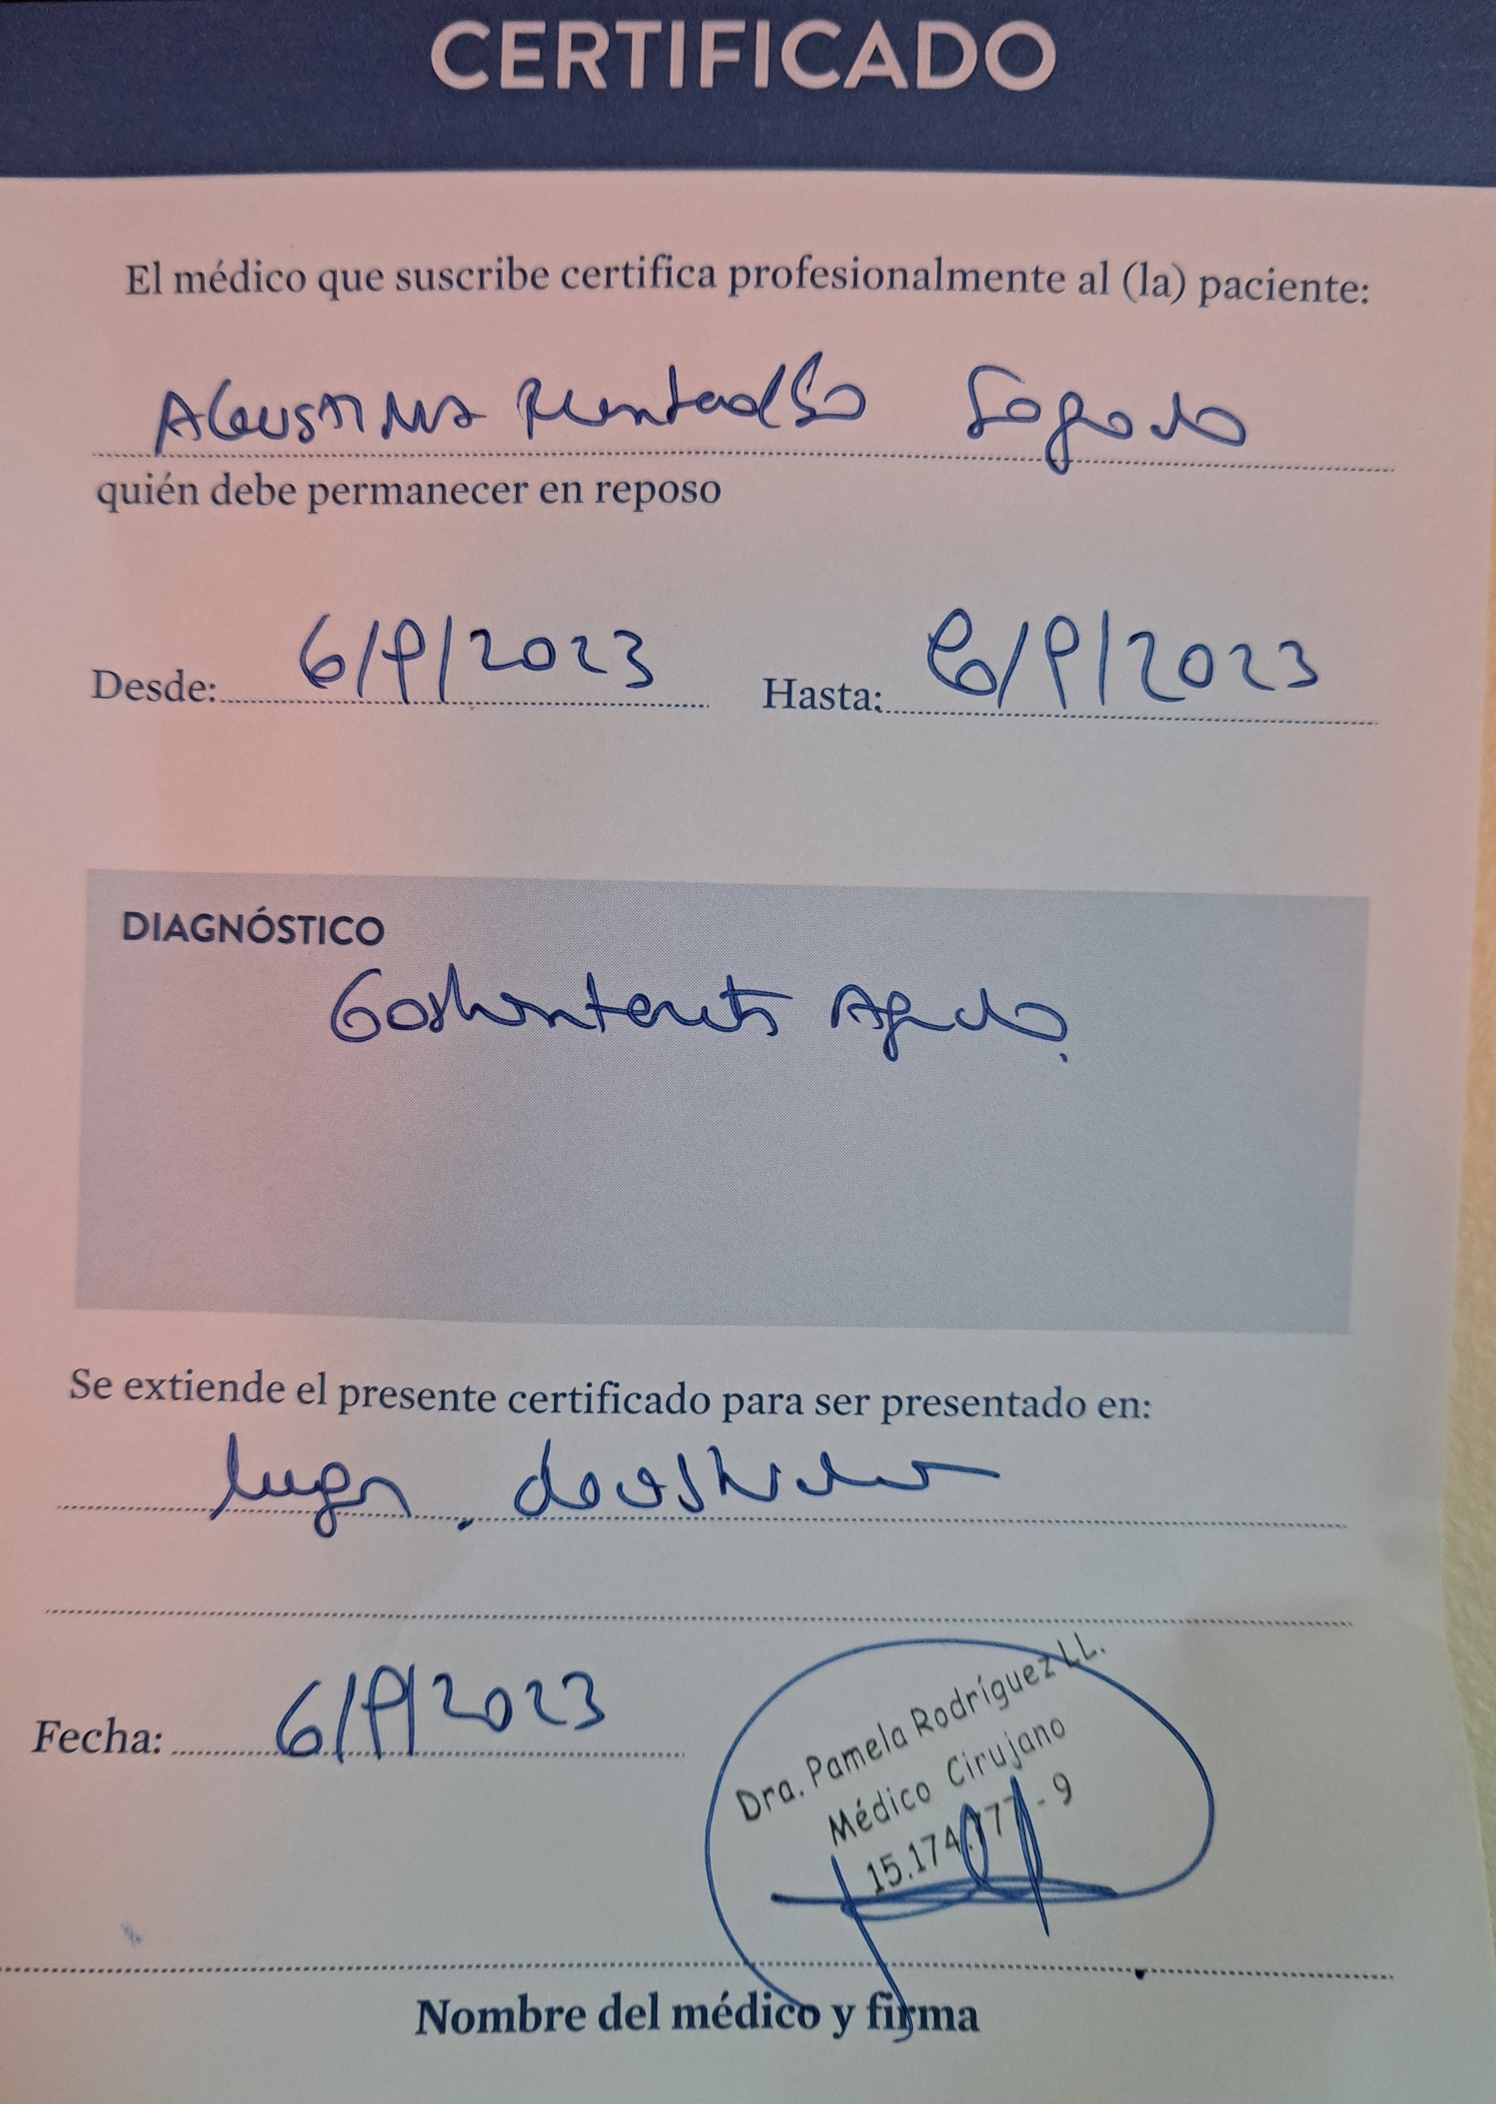 CERTIFICADO
El médico que suscribe certifica profesionalmente al (la) paciente:
Agustina
quién debe permanecer en reposo
Desde: 6/9/2023 Hasta: 8/9/2023
DIAGNÓSTICO
Gastroenteritis Aguda.
Se extiende el presente certificado para ser presentado en:
lugar de estudio
Fecha: 6/9/2023
Dra. Pamela Rodríguez LL.
Médico Cirujano
15.174.777-9
Nombre del médico y firma